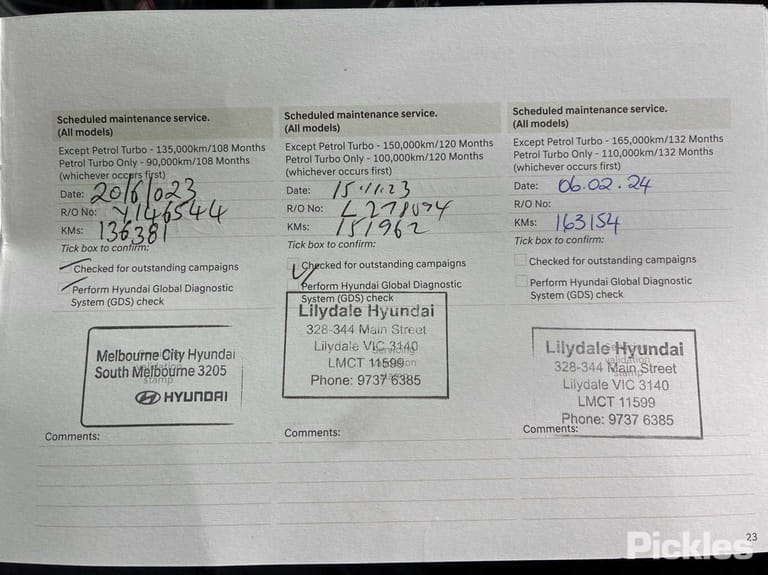 Scheduled maintenance service.
(All models)
Except Petrol Turbo - 135,000km/108 Months
Petrol Turbo Only - 90,000km/108 Months
(whichever occurs first)
Date: 20/6/023
R/O No: Y146544
KMs: 136381
Tick box to confirm:
Checked for outstanding campaigns
Perform Hyundai Global Diagnostic
System (GDS) check
Melbourne City Hyundai
South Melbourne 3205
stamp
HYUNDAI
Comments:
Scheduled maintenance service.
(All models)
Except Petrol Turbo - 150,000km/120 Months
Petrol Turbo Only - 100,000km/120 Months
(whichever occurs first)
Date: 15.11.23
R/O No: L278094
KMs: 151962
Tick box to confirm:
Checked for outstanding campaigns
Perform Hyundai Global Diagnostic
System (GDS) check
Lilydale Hyundai
328-344 Main Street
Lilydale VIC 3140
LMCT 11599
Phone: 9737 6385
Comments:
Scheduled maintenance service.
(All models)
Except Petrol Turbo - 165,000km/132 Months
Petrol Turbo Only - 110,000km/132 Months
(whichever occurs first)
Date: 06.02.24
R/O No:
KMs: 163154
Tick box to confirm:
Checked for outstanding campaigns
Perform Hyundai Global Diagnostic
System (GDS) check
Lilydale Hyundai
328-344 Main Street
Lilydale VIC 3140
LMCT 11599
Phone: 9737 6385
Comments:
23
Pickles